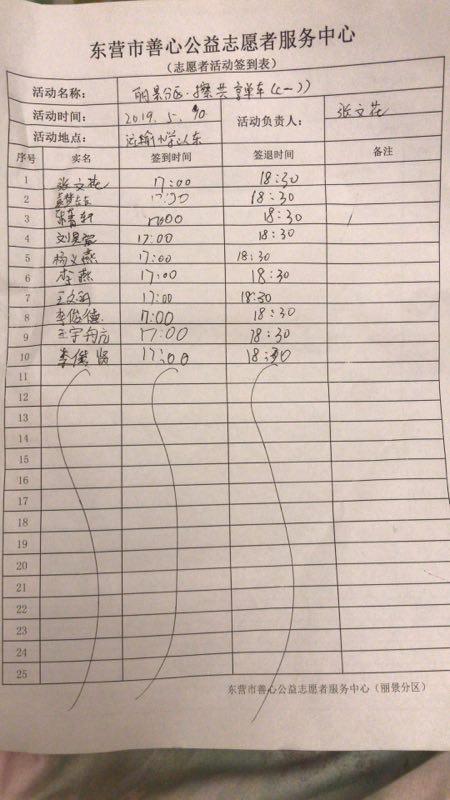 东营市善心公益志愿者服务中心
（志愿者活动签到表）
活动名称： 丽景分区·擦共享单车(一)
活动时间： 2019.5. 活动负责人： 张文花
活动地点： 运输 以东
序号 实名 签到时间 签退时间 备注
1 张文花 17:00 18:30
2 18:30
3 17:00 18:30
4 17:00 18:30
5 杨义燕 17:00 18:30
6 李燕 17:00 18:30
7 17:00 18:30
8 李俊德 17:00 18:30
9 17:00 18:30
10 李俊贤 17:00 18:30
11
12
13
14
15
16
17
18
19
20
21
22
23
24
25
东营市善心公益志愿者服务中心（丽景分区）